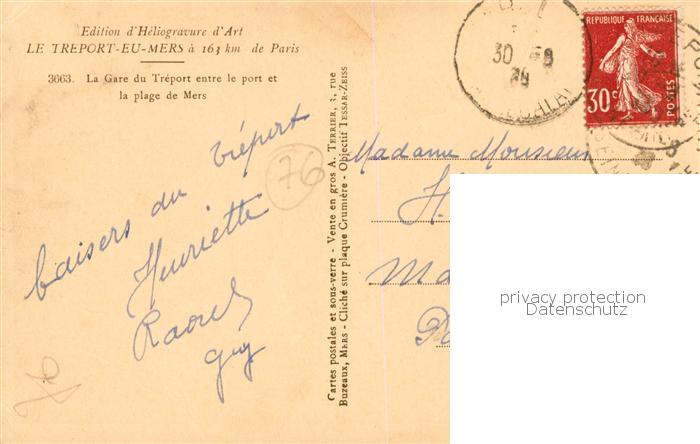 Edition d'Héliogravure d'Art
LE TREPORT-EU-MERS à 163 km de Paris
3663. La Gare du Tréport entre le port et
la plage de Mers
baisers du tréport
Henriette
Raoul
guy
76
76
Cartes postales et sous-verre - Vente en gros A. TERRIER, 3, rue
Buzeaux, MERS - Cliché sur plaque Crumière - Objectif TESSAR-ZEISS
30 -8
38
REPUBLIQUE FRANÇAISE
30c
POSTES
Madame Monsieur
H
Ma
privacy protection
Datenschutz